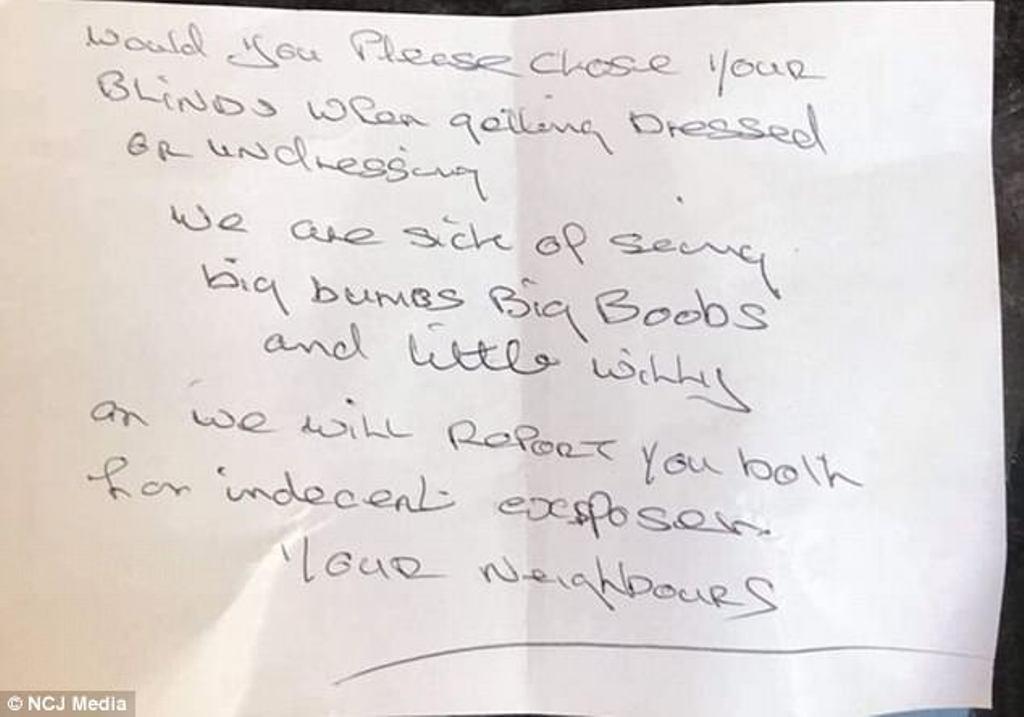 would you Please chose your
BLiNDS when getting Dressed
or undressing
we are sick of seing
big bumbs Big Boobs
and little willy
an we will REPORT you both
for indecent exsposer.
Your Neighbours
© NCJ Media